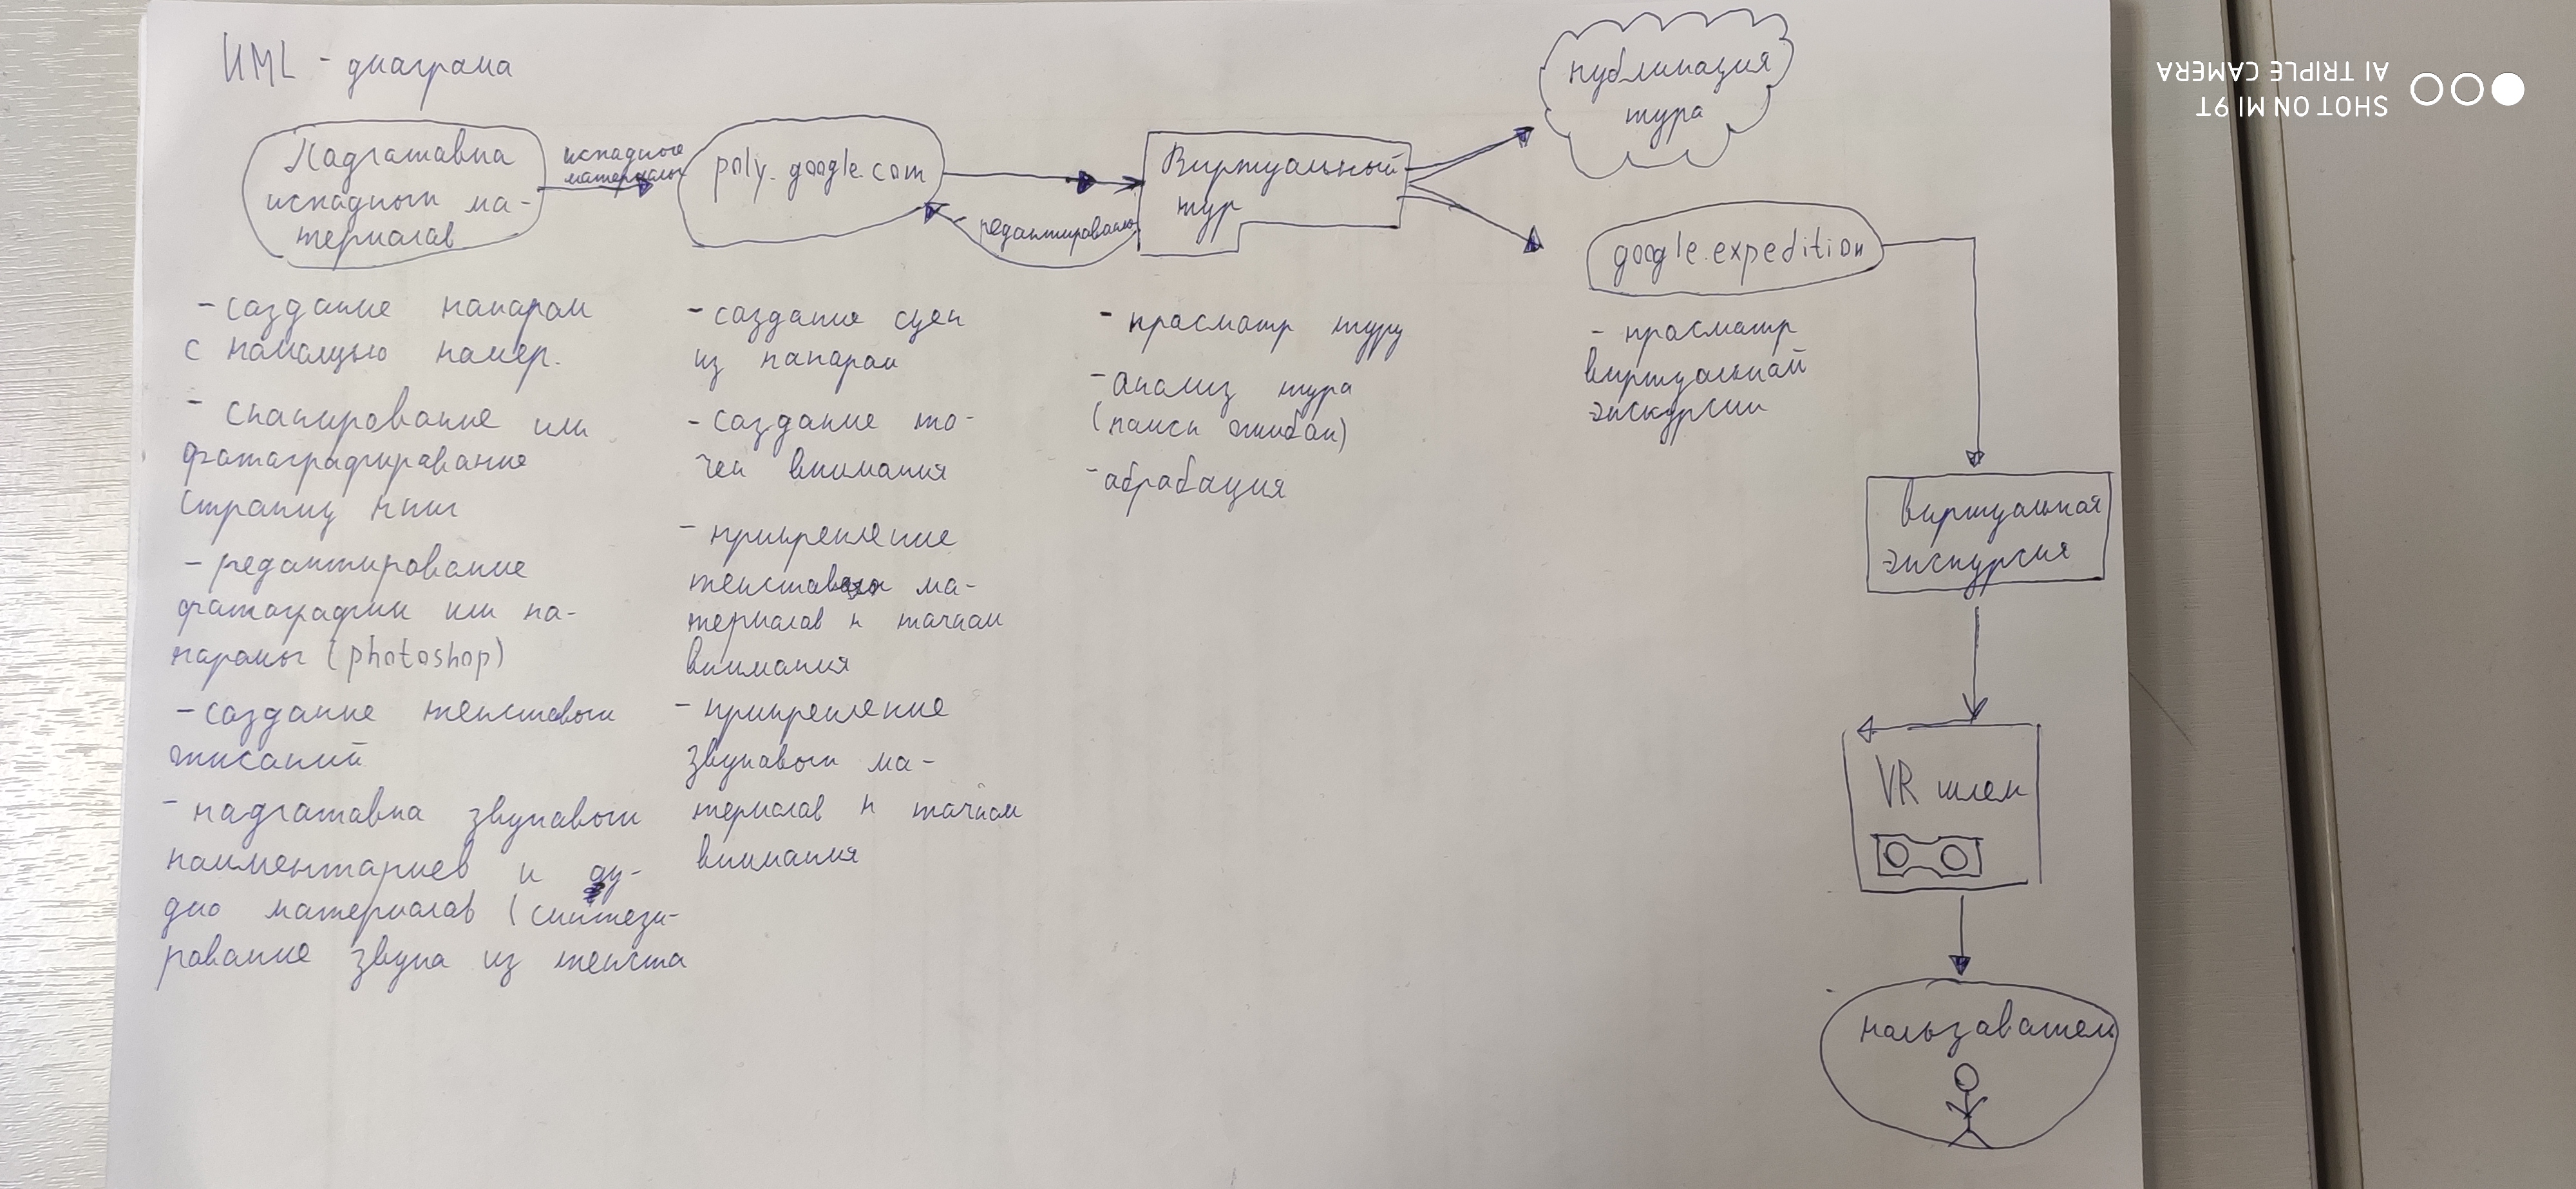 ИML - диаграма
Падгатавка
исхадных ма-
териалав
исхадные
материалы
poly.google.com
редактирование
Виртуальный
тур
публикация
тура
google.expedition
- создание панарам
с помощью камер.
- сканирование или
фатаграфирование
страниц книг
- редактирование
фатографии или па-
нарамы (photoshop)
- создание текставых
описаний
- падгатавка звукавых
комментариев и ау-
дио материалав (синтези-
рование звука из текста
- создание сцен
из панарам
- создание то-
чек внимания
- прикрепление
текставых ма-
териалав к точкам
внимания
- прикрепление
звукавых ма-
териалав к точкам
внимания
- прасматр туру
- анализ тура
(поиск ошибак)
- абрабация
- прасматр
виртуальнай
экскурсии
виртуальная
экскурсия
VR шлем
пользаватель
SHOT ON MI 9T
AI TRIPLE CAMERA